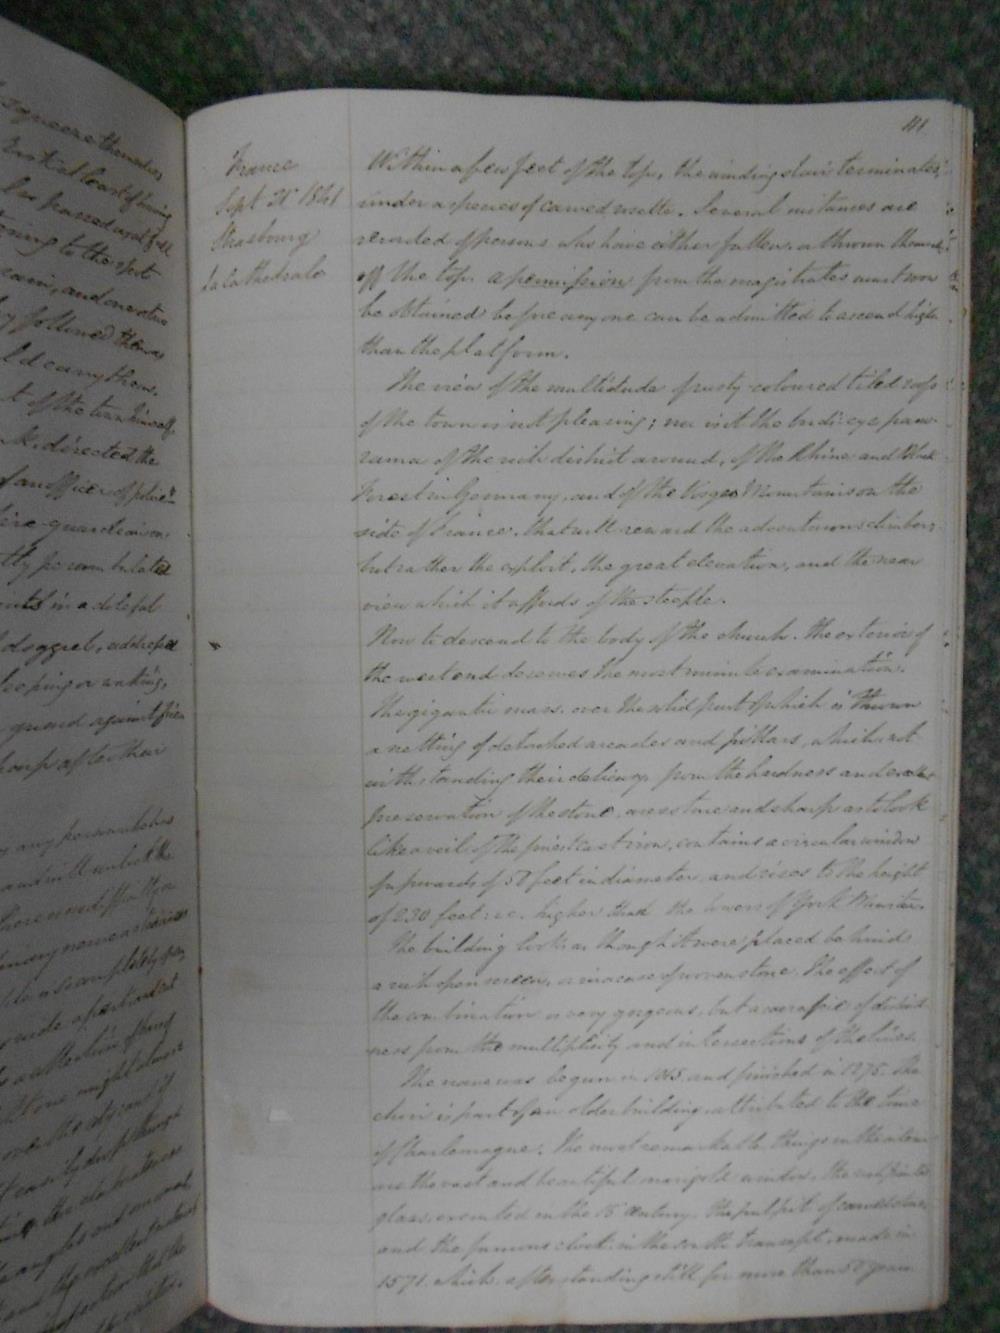 squeeze themselves
least of having
has passed
to the spot
rain, and
followed them as
carry them.
of the town himself
directed the
an officer of police
fire-guardian
perambulated
in a doleful
doggrel, addressed
sleeping or waking,
guard against fire
sharp after their
any
and will
the descent of
the exactness
angles and
and the excellent
that the
141
France
Sept 21 1841
Strasbourg
La Cathedrale
Within a few feet of the top, the winding stair terminates,
under a species of carved rosette. Several instances are
recorded of persons who have either fallen, or thrown themselves
off the top. a permission from the magistrates must now
be obtained before any one can be admitted to ascend higher
than the platform.
The view of the multitude of rusty-coloured tiled roofs
of the town is not pleasing; nor is it the bird's eye pano-
rama of the rich district around, of the Rhine and Black
Forest in Germany, and of the Vosges Mountains on the
side of France. that will reward the adventurous climbers
but rather the exploit, the great elevation, and the near
view which it affords of the steeple.
Now to descend to the body of the church. the exterior of
the west end deserves the most minute examination.
The gigantic mass. over the solid part of which is thrown
a netting of detached arcades and pillars, which, not-
withstanding their delicacy, from the hardness and excellent
preservation of the stone, are so true and sharp as to look
like a veil of the finest cast iron, contains a circular window
of upwards of 50 feet in diameter, and rises to the height
of 230 feet: i.e. higher than the towers of York Minster.
The building looks as though it were placed behind
a rich open screen, or in a case of woven stone. The effect of
the combination is very gorgeous, but a sacrifice of distinct-
ness from the multiplicity and intersections of the lines.
The nave was begun in 1015. and finished in 1275. the
choir is part of an older building, attributed to the time
of Charlemagne. The most remarkable things in the interior
are the vast and beautiful marigold window, the rich painted
glass, executed in the 15 century. the pulpit of carved stone,
and the famous clock in the south transept, made in
1571. which after standing still for more than 50 years